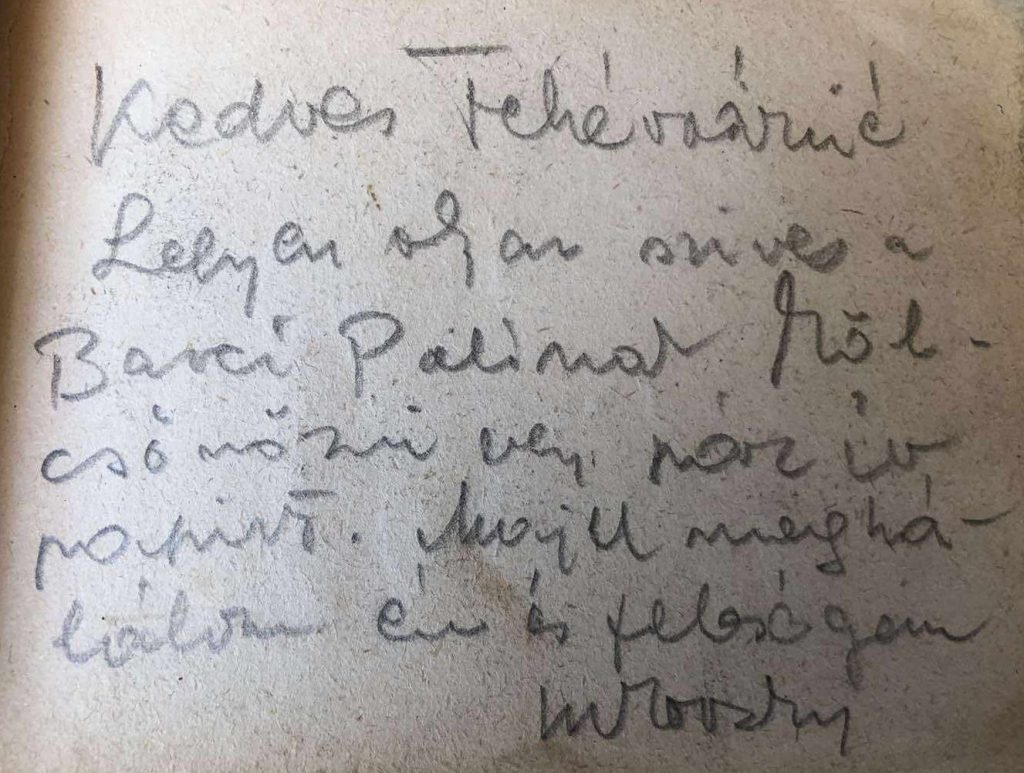 Kedves Fehérvárié
Legyen olyan szives a
Barci Palinak köl-
csönözni egy pár ív
papirt. Majd meghá-
lálom én és feleségem